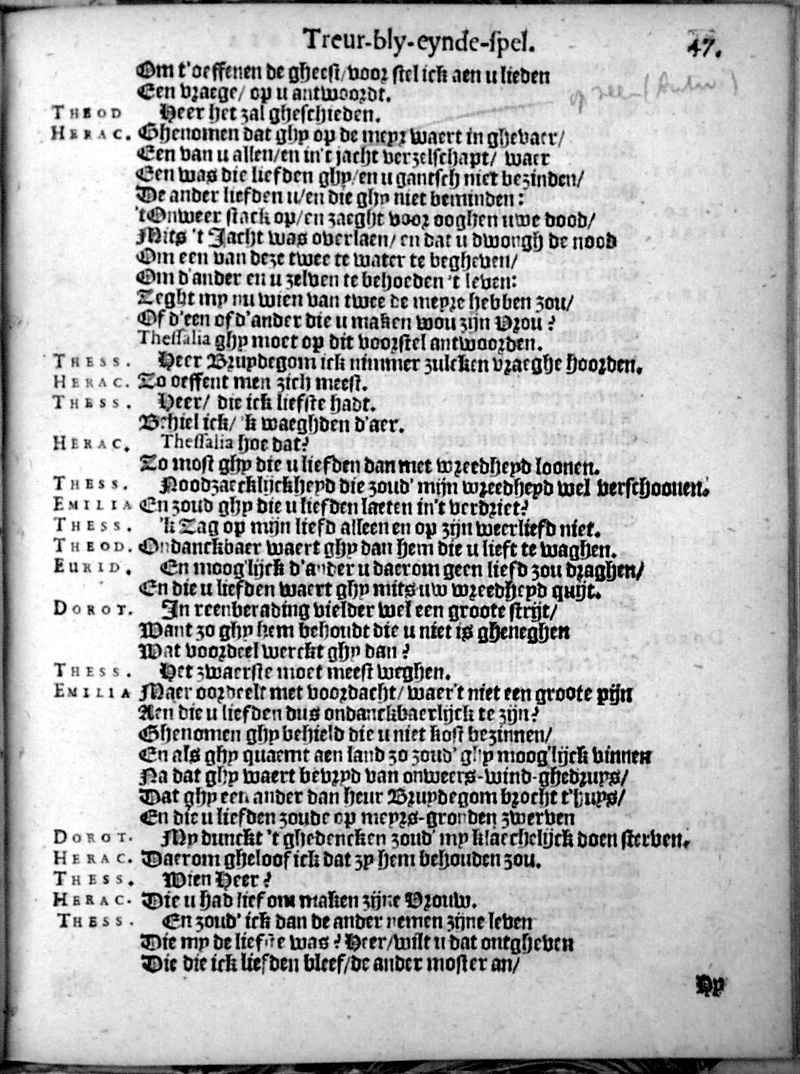 Treur-bly-eynde-spel. 47.
Om t'oeffenen de gheest/voor stel ick aen u lieden
Een vraege/ op u antwoordt.
THEOD Heer het zal gheschieden.
HERAC. Ghenomen dat ghy op de meyr waert in ghevaer/
Een van u allen/en in't jacht verzelschapt/ waer
Een was die liefden ghy/en u gantsch niet bezinden/
De ander liefden u/en die ghy niet beminden:
't Onweer stack op/en zaeght voor ooghen uwe dood/
Mits 't Jacht was overlaen/ en dat u dwongh de nood
Om een van deze twee te water te begheven/
Om d'ander en u zelven te behoeden 't leven:
Zeght my nu wien van twee de meyre hebben zou/
Of d'een of d'ander die u maken wou zijn Vrou?
Thessalia ghy moet op dit voorstel antwoorden.
THESS. Heer Bruydegom ick nimmer zulcken vraeghe hoorden.
HERAC. Zo oeffent men zich meest.
THESS. Heer/ die ick liefste hadt.
Behiel ick/ 'k waeghden d'aer.
HERAC. Thessalia hoe dat?
Zo most ghy die u liefden dan met wreedheyd loonen.
THESS. Noodzaecklijckheyd die zoud' mijn wreedheyd wel verschoonen.
EMILIA En zoud ghy die u liefden laeten in't verdriet?
THESS. 'k Zag op mijn liefd alleen en op zijn weerliefd niet.
THEOD. Ondanckbaer waert ghy dan hem die u lieft te waghen.
EURID. En moog'lijck d'ander u daerom geen liefd zou draghen/
En die u liefden waert ghy mits uw wreedheyd quijt.
DOROT. In reenberading vielder wel een groote strijt/
Want zo ghy hem behoudt die u niet is gheneghen
Wat voordeel werckt ghy dan?
THESS. Het zwaerste moet meest weghen.
EMILIA Maer oordeelt met voordacht/ waer't niet een groote pijn
Aen die u liefden dus ondanckbaerlijck te zijn?
Ghenomen ghy behield die u niet kost bezinnen/
En als ghy quaemt aen land zo zoud' ghy moog'lijck vinnen
Na dat ghy waert bevryd van onweers-wind-ghedruys/
Dat ghy een ander dan heur Bruydegom brocht t'huys/
En die u liefden zoude op meyrs-gronden zwerven
DOROT. My dunckt 't ghedencken zoud' my klaechelijck doen sterven.
HERAC. Daerom gheloof ick dat zy hem behouden zou.
THESS. Wien Heer?
HERAC. Die u had lief om maken zijne Vrouw.
THESS. En zoud' ick dan de ander nemen zijne leven
Die my de liefste was? Heer/wilt u dat ontgheven
Die die ick liefden bleef/de ander moster an/
Op